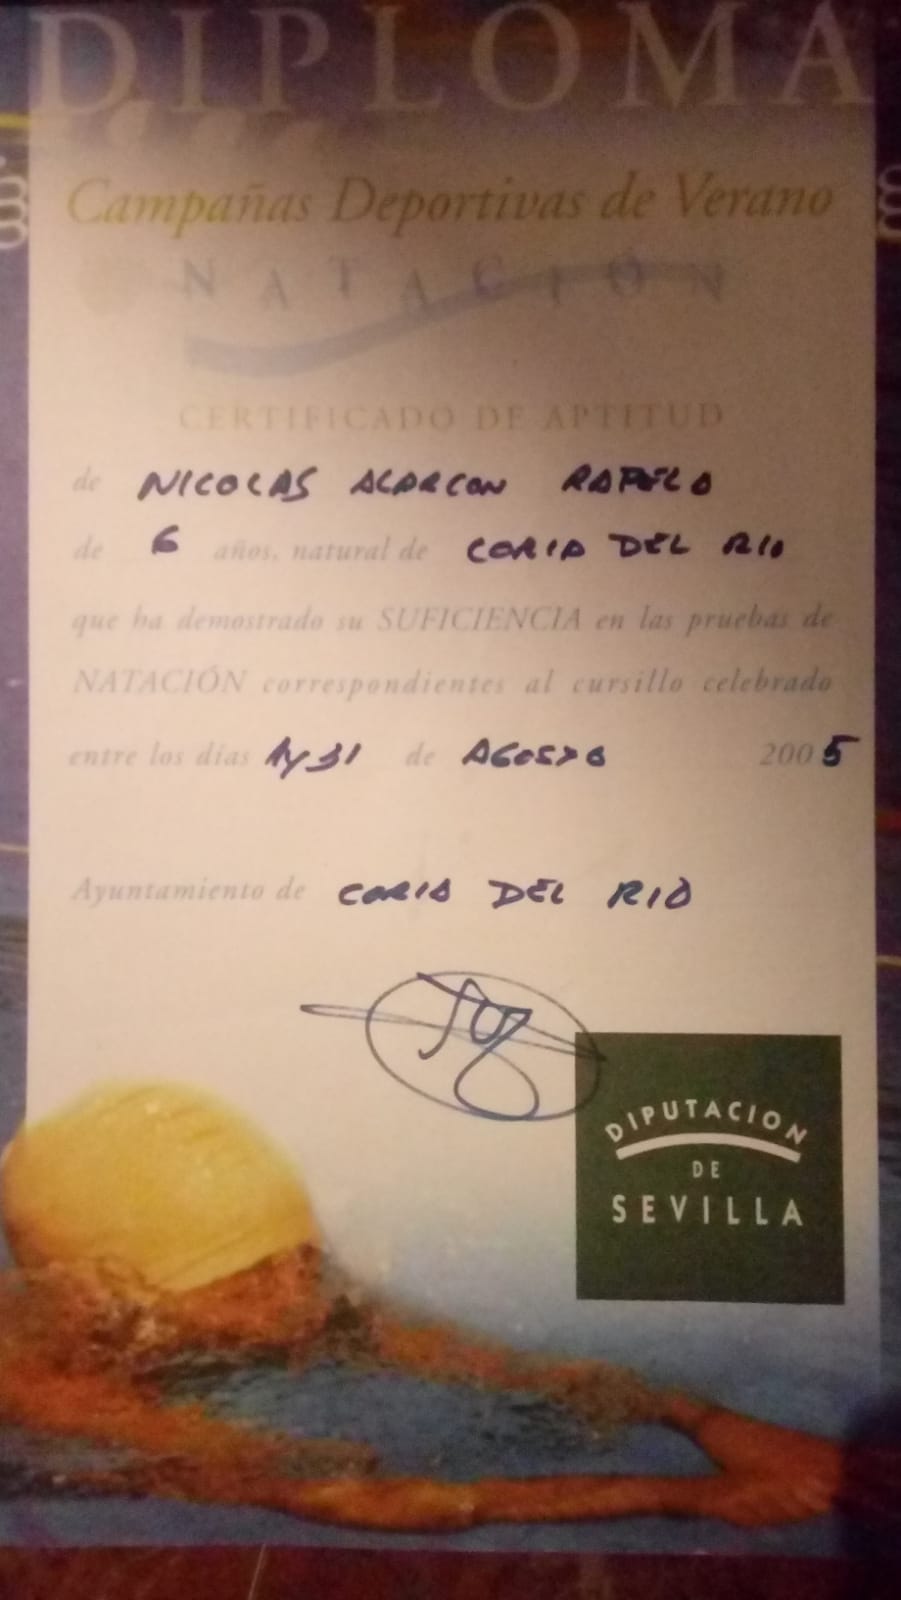 DIPLOMA
Campañas Deportivas de Verano
NATACIÓN
CERTIFICADO DE APTITUD
de NICOLAS ALARCON
de 6 años, natural de CORIA DEL RIO
que ha demostrado su SUFICIENCIA en las pruebas de
NATACIÓN correspondientes al cursillo celebrado
entre los días 1 y 31 de AGOSTO 2005
Ayuntamiento de CORIA DEL RIO
DIPUTACION
DE
SEVILLA